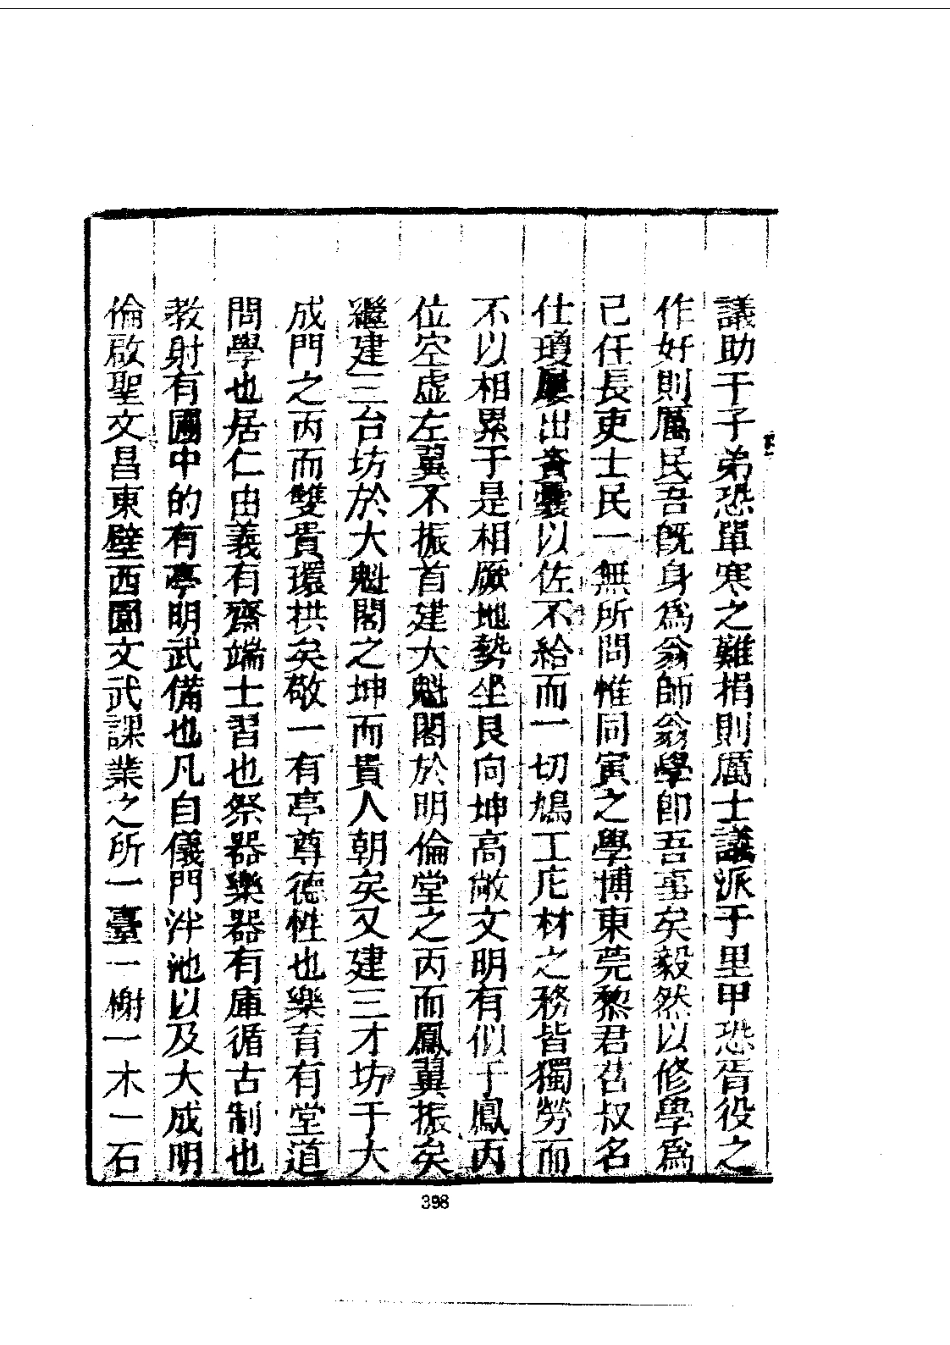 議助于子弟恐單寒之難捐則厲士議派于里甲恐胥役之
作好則厲民吾既身爲翁師翁學卽吾事矣毅然以修學爲
己任長吏士民一無所問惟同寅之學博東莞黎君召叔名
仕瓊屢出資囊以佐不給而一切鳩工庀材之務皆獨勞而
不以相累于是相厥地勢坐艮向坤高敞文明有似于鳳丙
位空虛左翼不振首建大魁閣於明倫堂之丙而鳳翼振矣
繼建三台坊於大魁閣之坤而貴人朝矣又建三才坊于大
成門之丙而雙貴環拱矣敬一有亭尊德性也樂育有堂道
問學也居仁由義有齋端士習也祭器樂器有庫循古制也
教射有圃中的有亭明武備也凡自儀門泮池以及大成明
倫啟聖文昌東壁西園文武課業之所一臺一榭一木一石
398